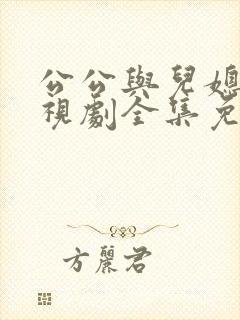 公公與兒媳
視劇全集免
方麗君